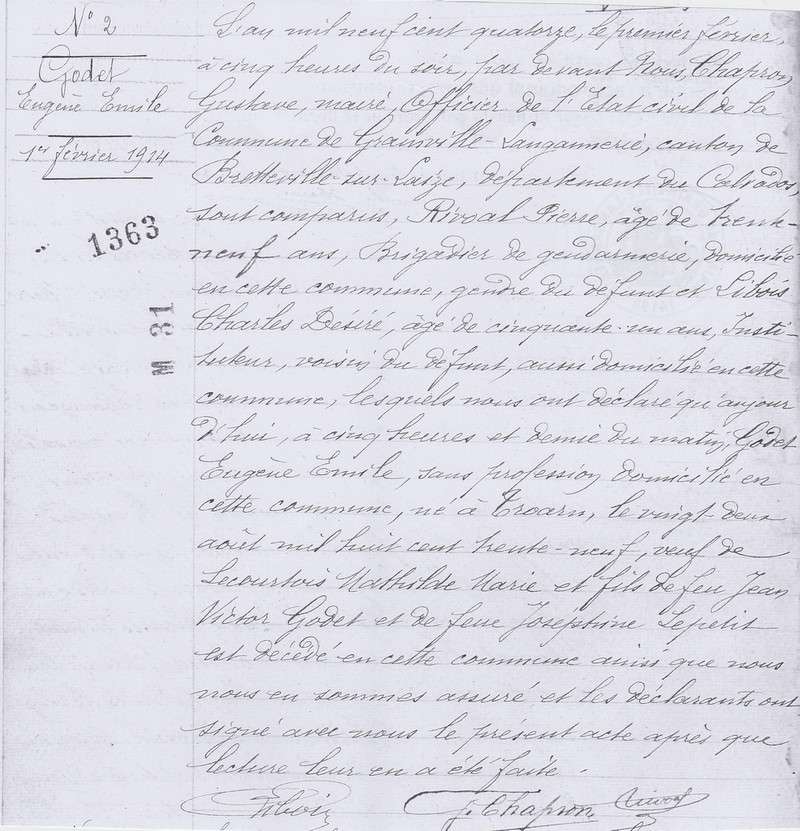 N° 2
Godet
Eugène Emile
1er février 1914
1363
M 31
L'an mil neuf cent quatorze, le premier février,
à cinq heures du soir, par devant Nous, Chapron
Gustave, maire, Officier de l'Etat civil de la
Commune de Grainville-Langannerie, canton de
Bretteville-sur-Laize, département du Calvados,
sont comparus, Rivoal Pierre, âgé de trente-
neuf ans, Brigadier de gendarmerie, domicilié
en cette commune, gendre du défunt et Libois
Charles Désiré, âgé de cinquante-un ans, Insti-
tuteur, voisin du défunt, aussi domicilié en cette
commune, lesquels nous ont déclaré qu'aujour
d'hui, à cinq heures et demie du matin, Godet
Eugène Emile, sans profession, domicilié en
cette commune, né à Troarn, le vingt-deux
août mil huit cent trente-neuf, veuf de
Lecourtois Mathilde Marie et fils de feu Jean
Victor Godet et de feue Joséphine Lepetit
est décédé en cette commune ainsi que nous
nous en sommes assuré et les déclarants ont
signé avec nous le présent acte après que
lecture leur en a été faite.
Libois G. Chapron Rivoal